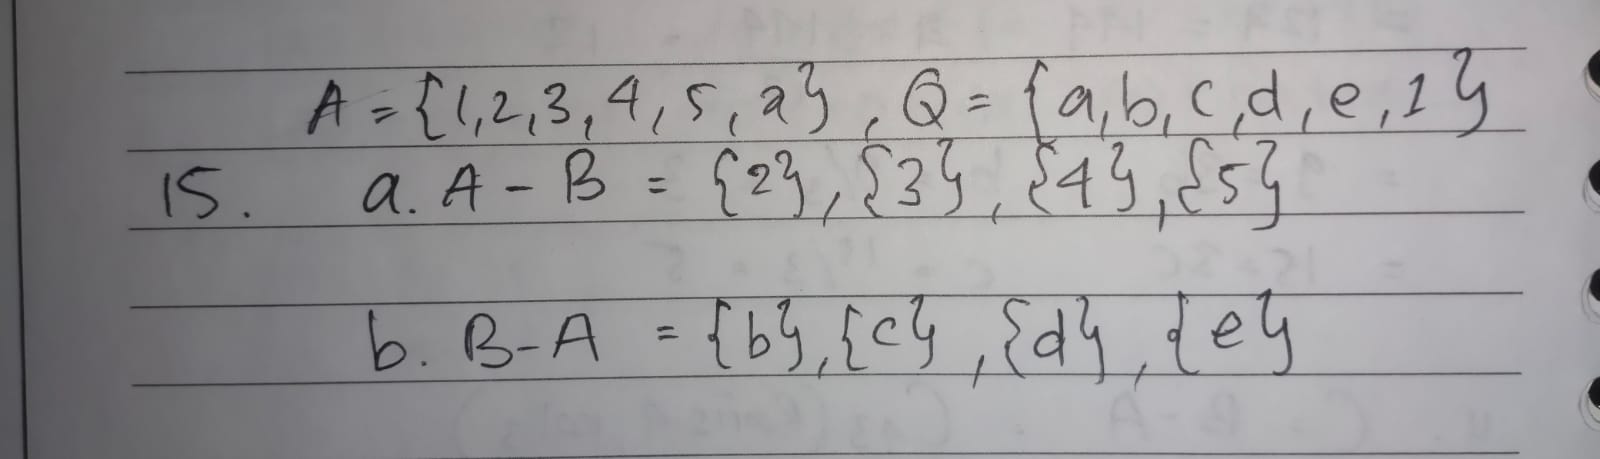 A = {1,2,3,4,5,a}, Q = {a,b,c,d,e,1}
15. a. A - B = {2},{3},{4},{5}
b. B-A = {b},{c},{d},{e}